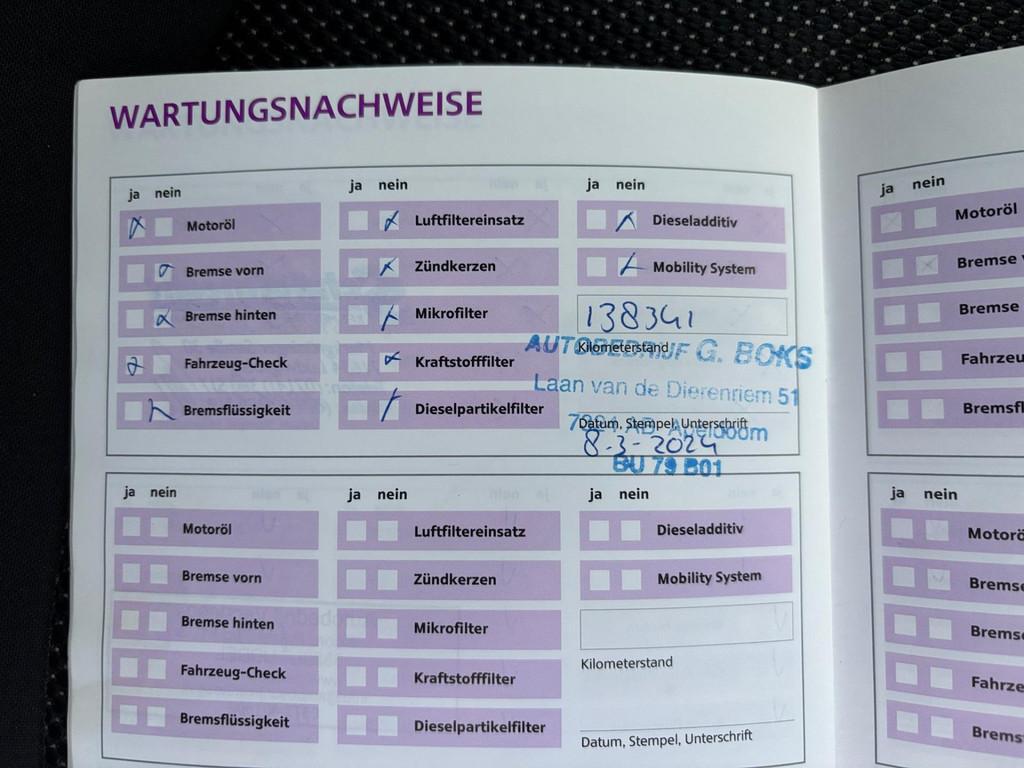 WARTUNGSNACHWEISE
ja nein
Motoröl
Bremse vorn
Bremse hinten
Fahrzeug-Check
Bremsflüssigkeit
ja nein
Luftfiltereinsatz
Zündkerzen
Mikrofilter
Kraftstofffilter
Dieselpartikelfilter
ja nein
Dieseladditiv
Mobility System
138341
Kilometerstand
AUTOBEDRIJF G. BOKS
Laan van de Dierenriem 51
Datum, Stempel, Unterschrift
AD Apeldoorn
8-3-2024
BU 79 B01
ja nein
Motoröl
Bremse vorn
Bremse hinten
Fahrzeug-Check
Bremsflüssigkeit
ja nein
Luftfiltereinsatz
Zündkerzen
Mikrofilter
Kraftstofffilter
Dieselpartikelfilter
ja nein
Dieseladditiv
Mobility System
Kilometerstand
Datum, Stempel, Unterschrift
ja nein
Motoröl
Bremse
Bremse
Fahrzeu
Bremsfl
ja nein
Motorö
Bremse
Bremse
Fahrze
Brems